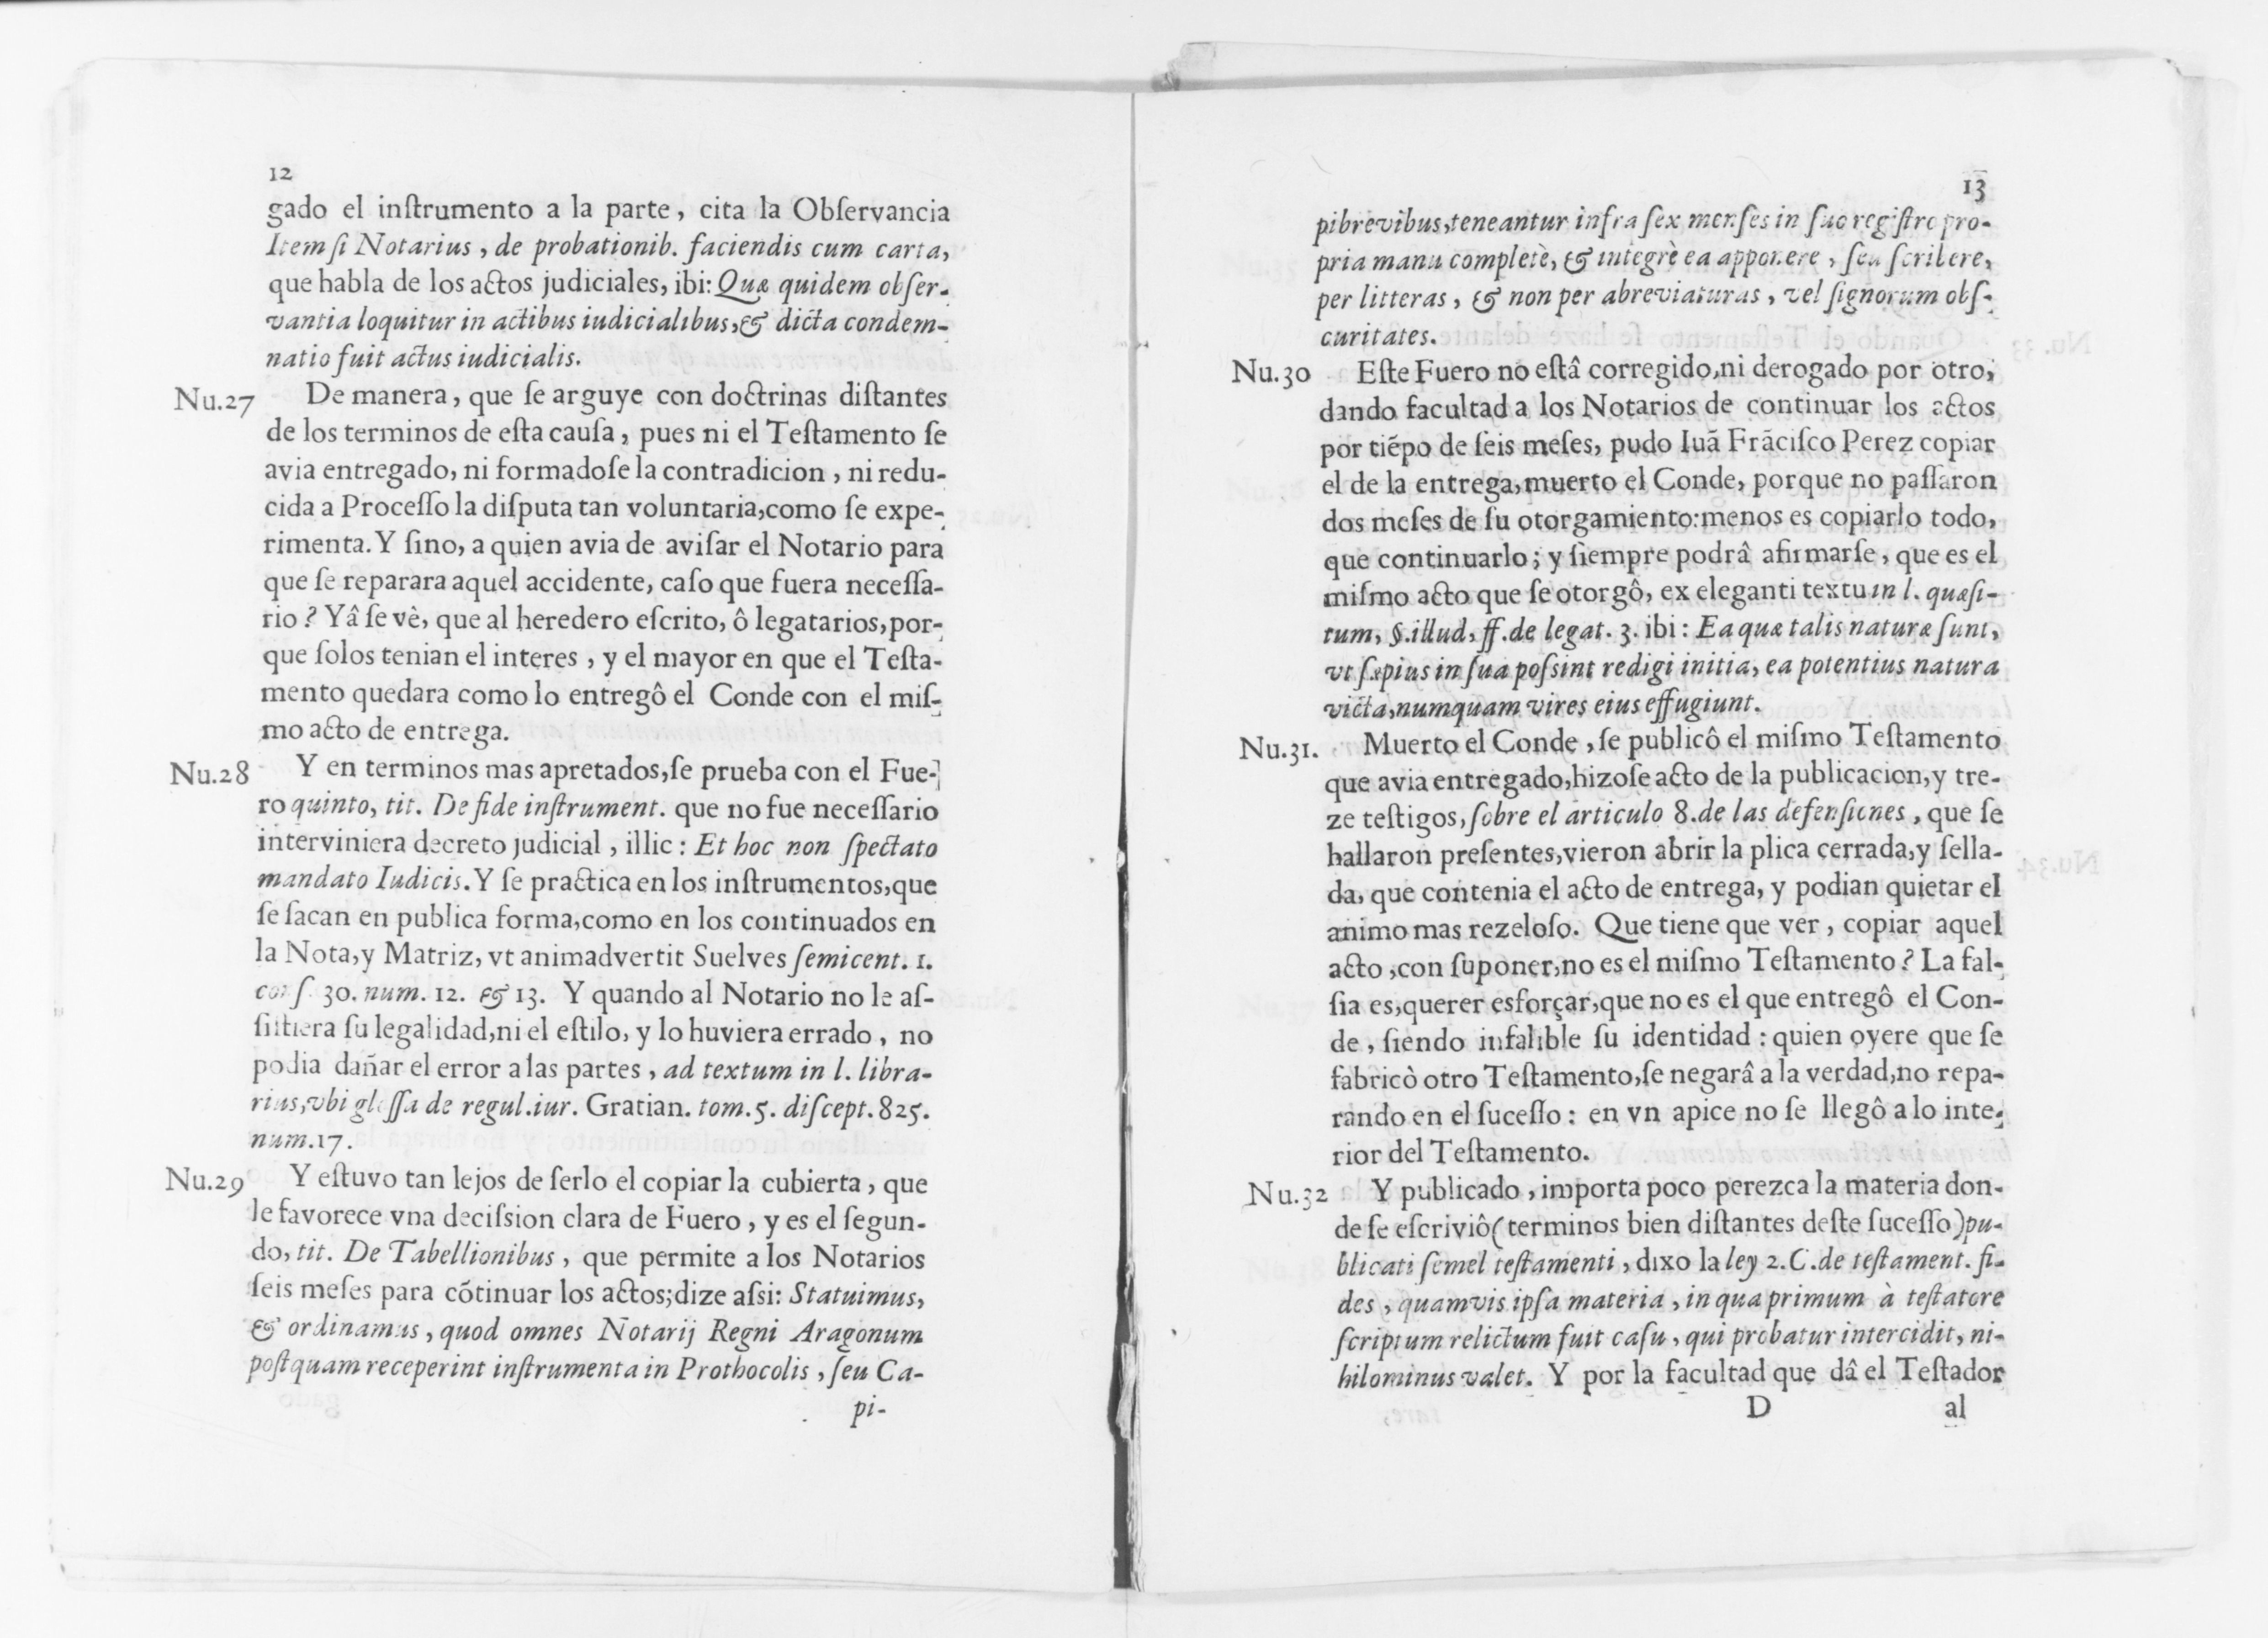 12
gado el inſtrumento a la parte, cita la Obſervancia
Item ſi Notarius, de probationib. faciendis cum carta,
que habla de los actos judiciales, ibi: Quæ quidem obſer-
vantia loquitur in actibus iudicialibus, & dicta condem-
natio fuit actus iudicialis.
Nu.27 De manera, que ſe arguye con doctrinas diſtantes
de los terminos de eſta cauſa, pues ni el Teſtamento ſe
avia entregado, ni formadoſe la contradicion, ni redu-
cida a Proceſſo la diſputa tan voluntaria, como ſe expe-
rimenta. Y ſino, a quien avia de aviſar el Notario para
que ſe reparara aquel accidente, caſo que fuera neceſſa-
rio? Yâ ſe vè, que al heredero eſcrito, ô legatarios, por-
que ſolos tenian el interes, y el mayor en que el Teſta-
mento quedara como lo entregô el Conde con el miſ-
mo acto de entrega.
Nu.28 Y en terminos mas apretados, ſe prueba con el Fue-
ro quinto, tit. De fide inſtrument. que no fue neceſſario
interviniera decreto judicial, illic: Et hoc non ſpectato
mandato Iudicis. Y ſe practica en los inſtrumentos, que
ſe ſacan en publica forma, como en los continuados en
la Nota, y Matriz, vt animadvertit Suelves ſemicent. 1.
conſ. 30. num. 12. & 13. Y quando al Notario no le aſ-
ſiſtiera ſu legalidad, ni el eſtilo, y lo huviera errado, no
podia dañar el error a las partes, ad textum in l. libra-
rius, vbi gloſſa de regul. iur. Gratian. tom. 5. diſcept. 825.
num. 17.
Nu.29 Y eſtuvo tan lejos de ſerlo el copiar la cubierta, que
le favorece vna deciſsion clara de Fuero, y es el ſegun-
do, tit. De Tabellionibus, que permite a los Notarios
ſeis meſes para cõtinuar los actos; dize aſsi: Statuimus,
& ordinamus, quod omnes Notarij Regni Aragonum
poſtquam receperint inſtrumenta in Prothocolis, ſeu Ca-
pi-
13
pibrevibus, teneantur infra ſex menſes in ſuo regiſtro pro-
pria manu completè, & integrè ea apponere, ſeu ſcribere,
per litteras, & non per abreviaturas, vel ſignorum obſ-
curitates.
Nu.30 Eſte Fuero no eſtâ corregido, ni derogado por otro,
dando facultad a los Notarios de continuar los actos
por tiẽpo de ſeis meſes, pudo Iuã Frãciſco Perez copiar
el de la entrega, muerto el Conde, porque no paſſaron
dos meſes de ſu otorgamiento: menos es copiarlo todo,
que continuarlo; y ſiempre podrâ afirmarſe, que es el
miſmo acto que ſe otorgô, ex eleganti textu in l. quæſi-
tum, §. illud, ff. de legat. 3. ibi: Ea quæ talis naturæ ſunt,
vt ſæpius in ſua poſsint redigi initia, ea potentius natura
victa, numquam vires eius effugiunt.
Nu.31. Muerto el Conde, ſe publicô el miſmo Teſtamento
que avia entregado, hizoſe acto de la publicacion, y tre-
ze teſtigos, ſobre el articulo 8. de las defenſiones, que ſe
hallaron preſentes, vieron abrir la plica cerrada, y ſella-
da, que contenia el acto de entrega, y podian quietar el
animo mas rezeloſo. Que tiene que ver, copiar aquel
acto, con ſuponer, no es el miſmo Teſtamento? La fal-
ſia es, querer esforçar, que no es el que entregô el Con-
de, ſiendo infalible ſu identidad: quien oyere que ſe
fabricò otro Teſtamento, ſe negarâ a la verdad, no repa-
rando en el ſuceſſo: en vn apice no ſe llegô a lo inte-
rior del Teſtamento.
Nu.32 Y publicado, importa poco perezca la materia don-
de ſe eſcriviô (terminos bien diſtantes deſte ſuceſſo) pu-
blicati ſemel teſtamenti, dixo la ley 2. C. de teſtament. fi-
des, quamvis ipſa materia, in qua primum à teſtatore
ſcriptum relictum fuit caſu, qui probatur intercidit, ni-
hilominus valet. Y por la facultad que dâ el Teſtador
D al